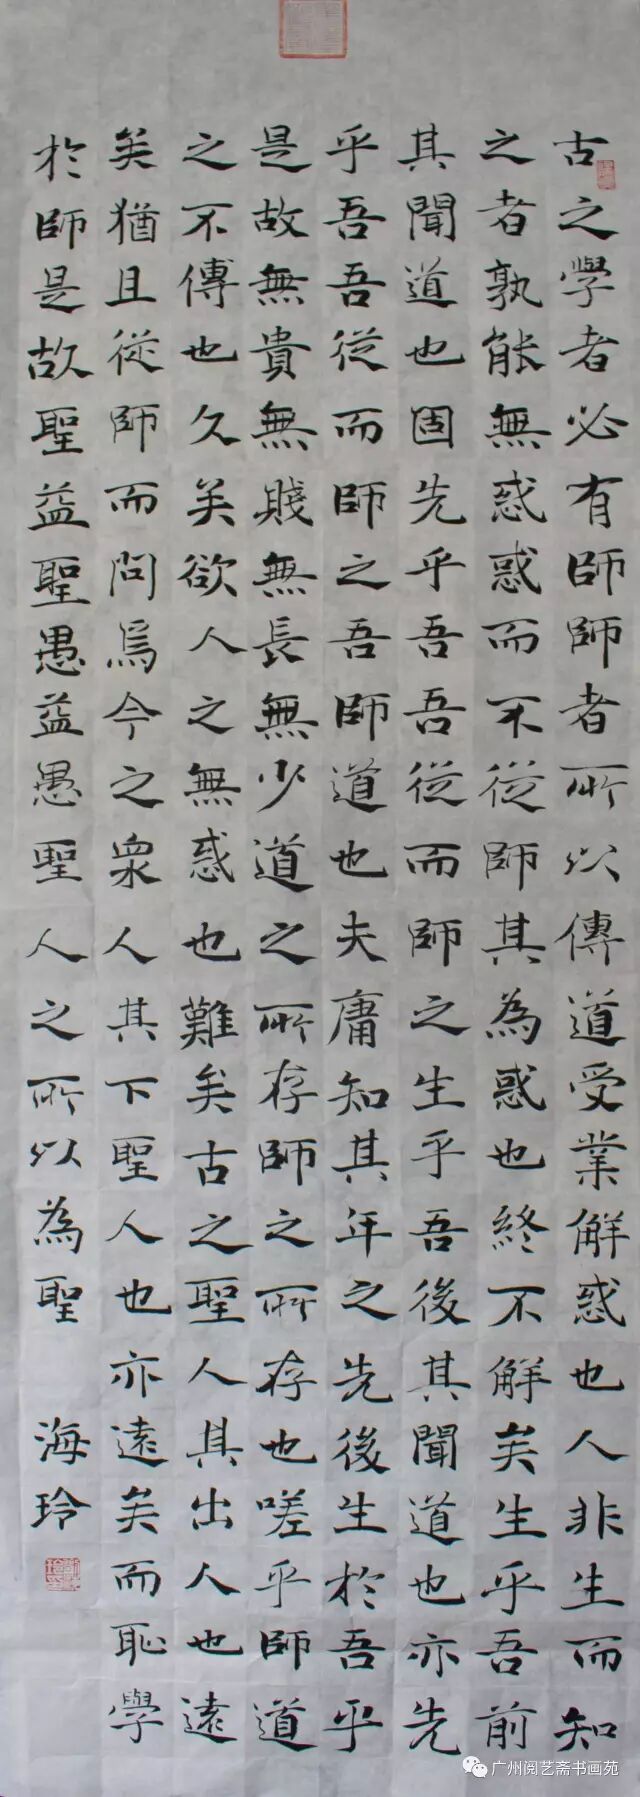 古之學者必有師師者所以傳道受業解惑也人非生而知
之者孰能無惑惑而不從師其為惑也終不解矣生乎吾前
其聞道也固先乎吾吾從而師之生乎吾後其聞道也亦先
乎吾吾從而師之吾師道也夫庸知其年之先後生於吾乎
是故無貴無賤無長無少道之所存師之所存也嗟乎師道
之不傳也久矣欲人之無惑也難矣古之聖人其出人也遠
矣猶且從師而問焉今之衆人其下聖人也亦遠矣而恥學
於師是故聖益聖愚益愚聖人之所以為聖 海玲
广州阅艺斋书画苑